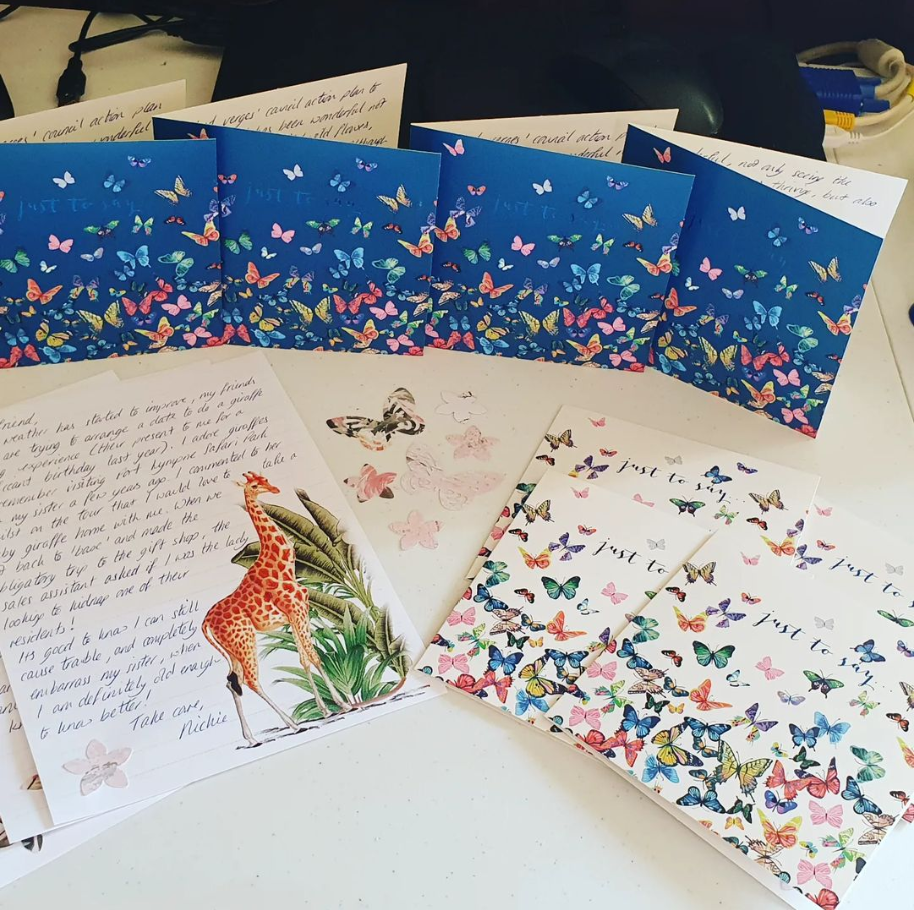 verges' council action plan
wonderful
verges' council action plan to
has been wonderful not
wild flowers,
council action plan
wonderful
not only seeing the
thrive, but also
just to say...
just to
just to
just to say...
just to
just to s
just to say...
friend,
weather has started to improve, my friends
are trying to arrange a date to do a giraffe
experience (their present to me for a
birthday last year). I adore giraffes
remember visiting Port Lympne Safari Park
my sister a few years ago. I commented to her
whilst on the tour that I would love to take a
baby giraffe home with me. When we
back to 'base' and made the
obligatory trip to the gift shop, the
sales assistant asked if I was the lady
looking to kidnap one of their
residents!
It's good to know I can still
cause trouble, and completely
embarrass my sister, when
I am definitely old enough
to know better!
Take care,
Nickie